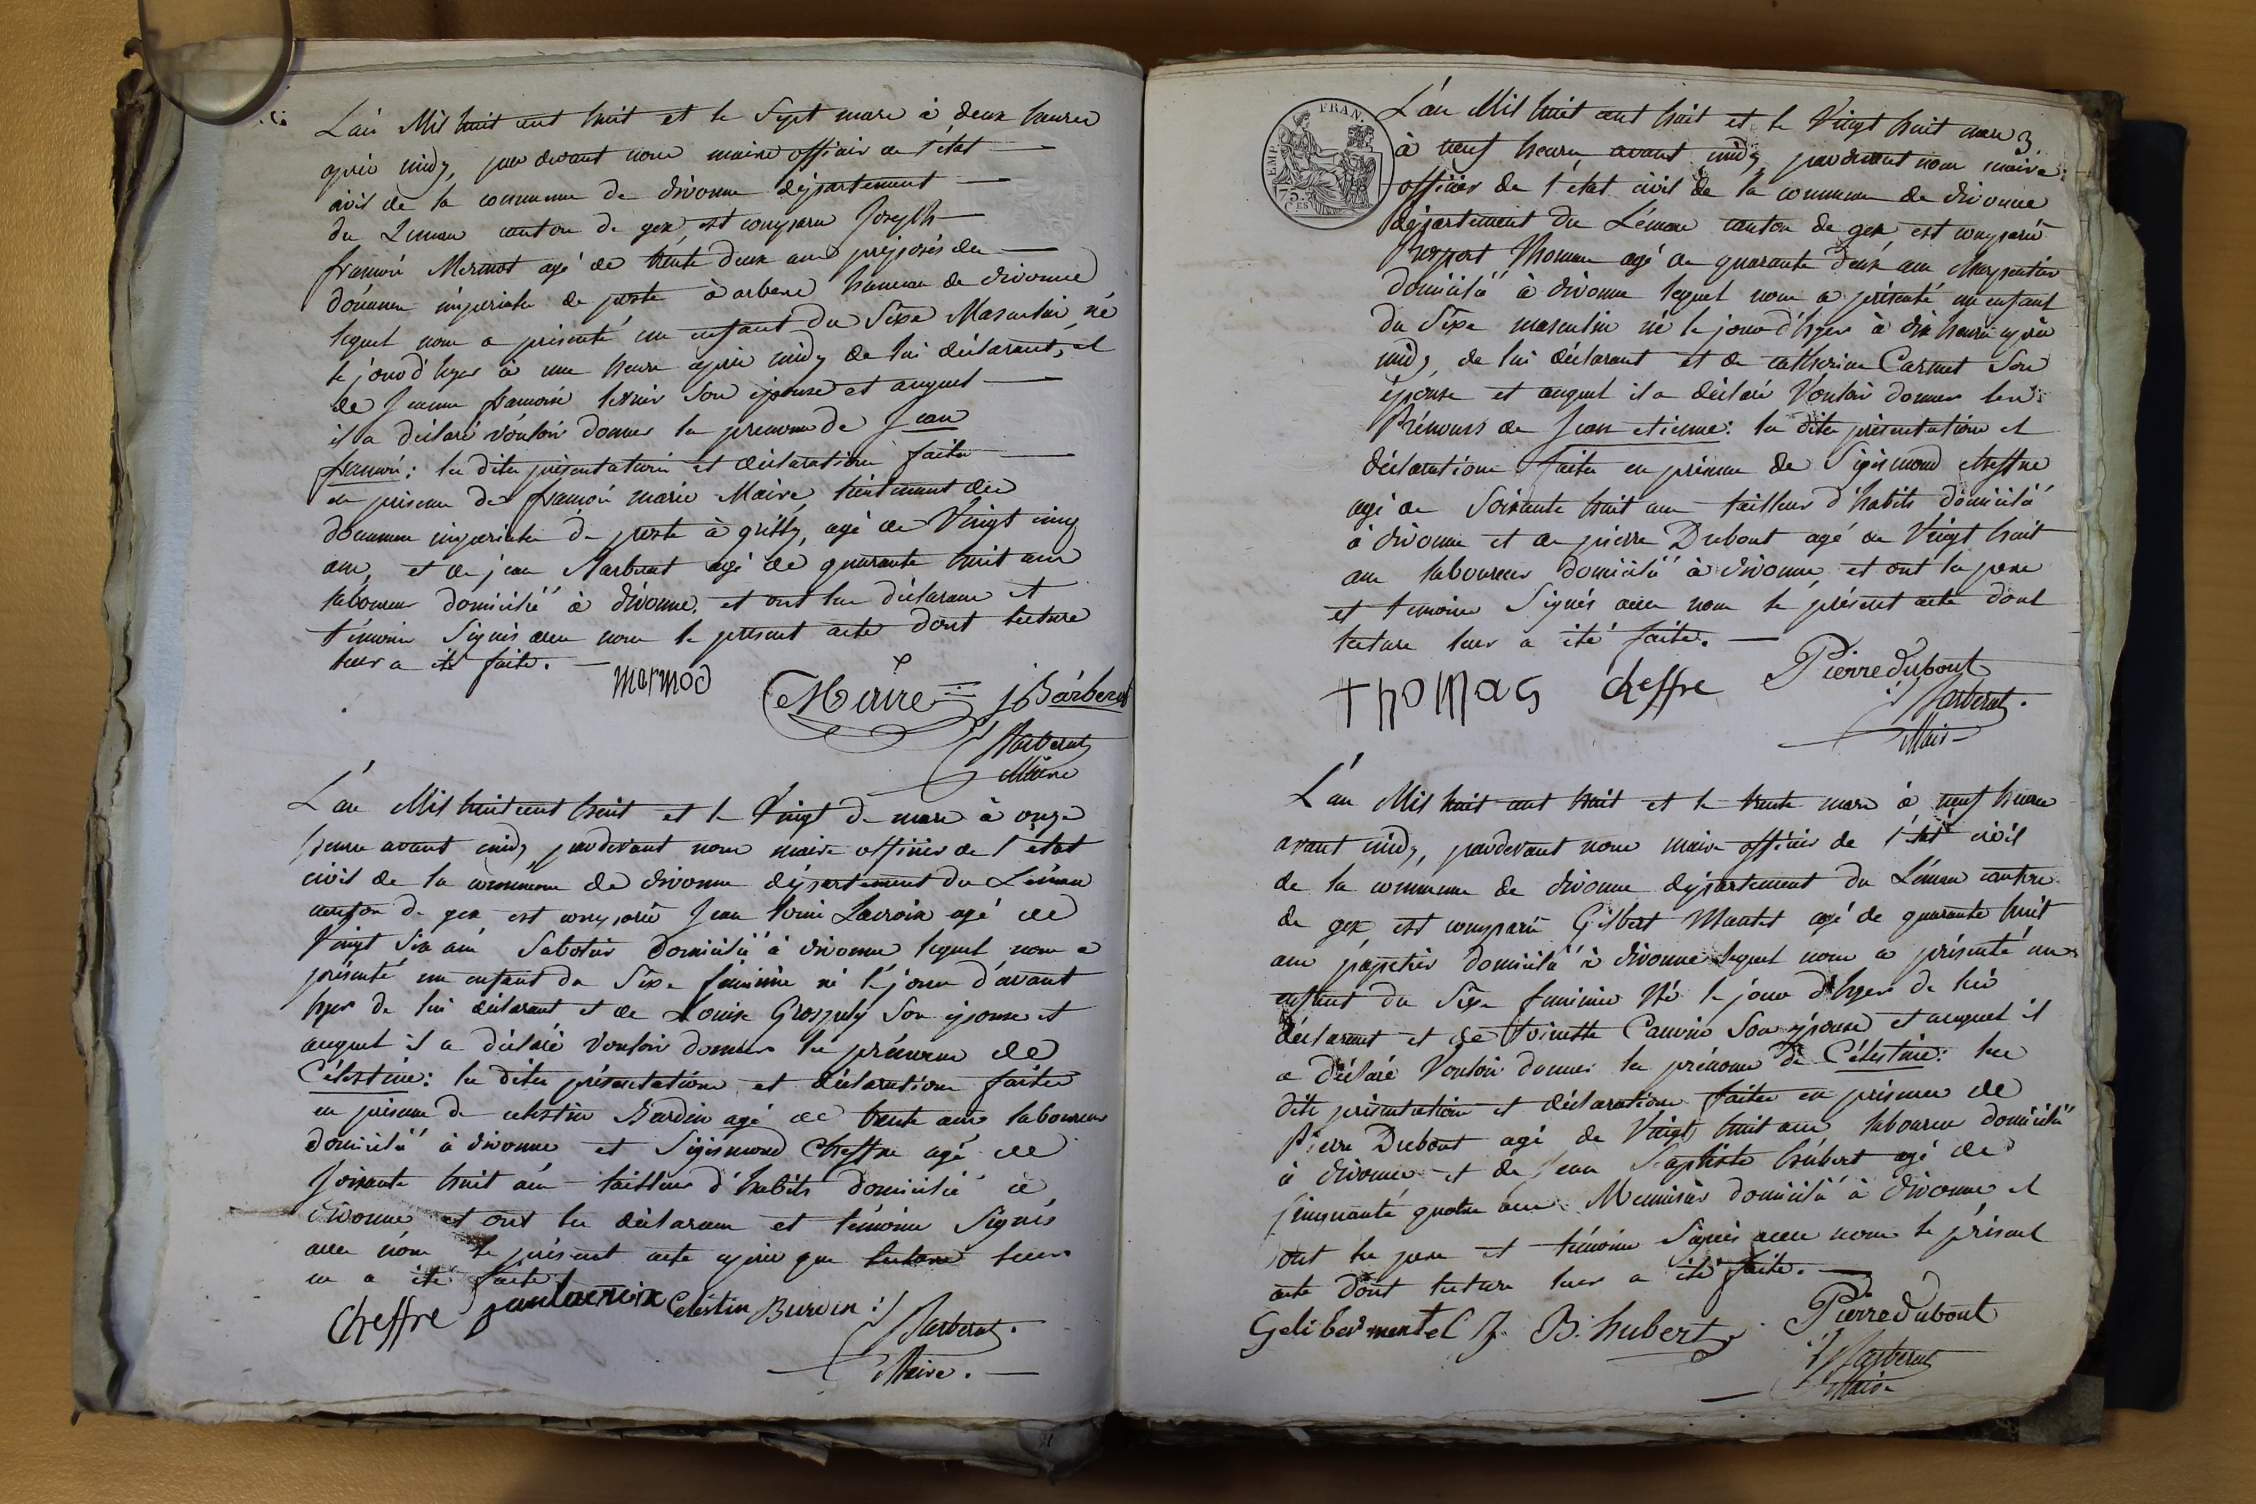 L'an Mil huit cent huit et le Sept mars à deux heures
après midy, par devant nous maire officier de l'état
civil de la commune de divonne département
du Léman canton de gex est comparu Joseph
françois Mermod agé de trente deux ans préposés des
douanes impériales de poste à arbere hameau de divonne
lequel nous a présenté un enfant du Sexe Masculin né
le jour d'hyer à une heure après midy de lui déclarant, et
de Jeanne françoise Son épouse et auquel
il a déclaré vouloir donner les prénoms de Jean
françois: les dites présentation et déclaration faites
en présence de françois marie Maire, lieutenant des
douanes impériales de poste à grilly, agé de Vingt cinq
ans, et de jean Barberat agé de quarante huit ans
laboureur domicilié à divonne, et ont les déclarans et
témoins Signés avec nous le présent acte dont lecture
leur a été faite.
mermod Maire j Barberat
Barberat
Maire
L'an Mil huit cent huit et le Vingt de mars à onze
heures avant midy, pardevant nous maire officier de l'état
civil de la commune de divonne département du Léman
canton de gex est comparu Jean Lacroix agé de
Vingt Six ans Sabotier domicilié à divonne lequel nous a
présenté un enfant du Sexe féminin né le jour d'avant
hyer de lui déclarant et de Louise Grosgurly Son épouse et
auquel il a déclaré Vouloir donner les prénoms de
Célestine: les dites présentation et déclaration faites
en présence de celestin Burdin agé de trente ans laboureur
domicilié à divonne et Sigismond Cheffre agé de
Soixante huit ans tailleur d'habits domicilié à
divonne et ont les déclarans et témoins Signés
avec nous le présent acte après que lecture leur
en a été faite.
Cheffre jean lacroix Celéstin Burdin
Barberat
Maire.
EMP. FRAN.
75 CES
L'an Mil huit cent huit et le Vingt huit mars 3
à neuf heures avant midy, pardevant nous maire
officier de l'état civil de la commune de divonne
département du Léman canton de gex est comparu
Prospert Thomas agé de quarante deux ans charpentier
domicilié à divonne lequel nous a présenté un enfant
du Sexe masculin né le jour d'hyer à dix heures après
midy, de lui déclarant et de catherine Carmet Son
épouse et auquel il a déclaré Vouloir donner les
Prénoms de Jean etienne: les dites présentation et
déclaration faites en présence de Sigismond cheffre
agé de Soixante huit ans tailleur d'habits domicilié
à divonne et de pierre Dubout agé de Vingt huit
ans laboureur domicilié à divonne, et ont les pere
et témoins Signés avec nous le présent acte dont
lecture leur a été faite.
Thomas cheffre Pierre dubout
Barberat.
Maire
L'an Mil huit cent huit et le trente mars à neuf heures
avant midy, pardevant nous maire officier de l'état civil
de la commune de divonne département du Léman canton
de gex est comparu Gilbert Mantet agé de quarante huit
ans papetier domicilié à divonne lequel nous a présenté un
enfant du Sexe féminin Né le jour d'hyer de lui
déclarant et de toinette Cauvin Son épouse et auquel il
a déclaré Vouloir donner les prénoms de Célestine: les
dites présentation et déclaration faites en présence de
Pierre Dubout agé de Vingt huit ans laboureur domicilié
à divonne et de Jean Baptiste hubert agé de
Cinquante quatre ans Menuisier domicilié à divonne et
ont les pere et témoins Signés avec nous le présent
acte dont lecture leur a été faite.
Geliber mentel J. B. hubert Pierre dubout
Barberat
Maire